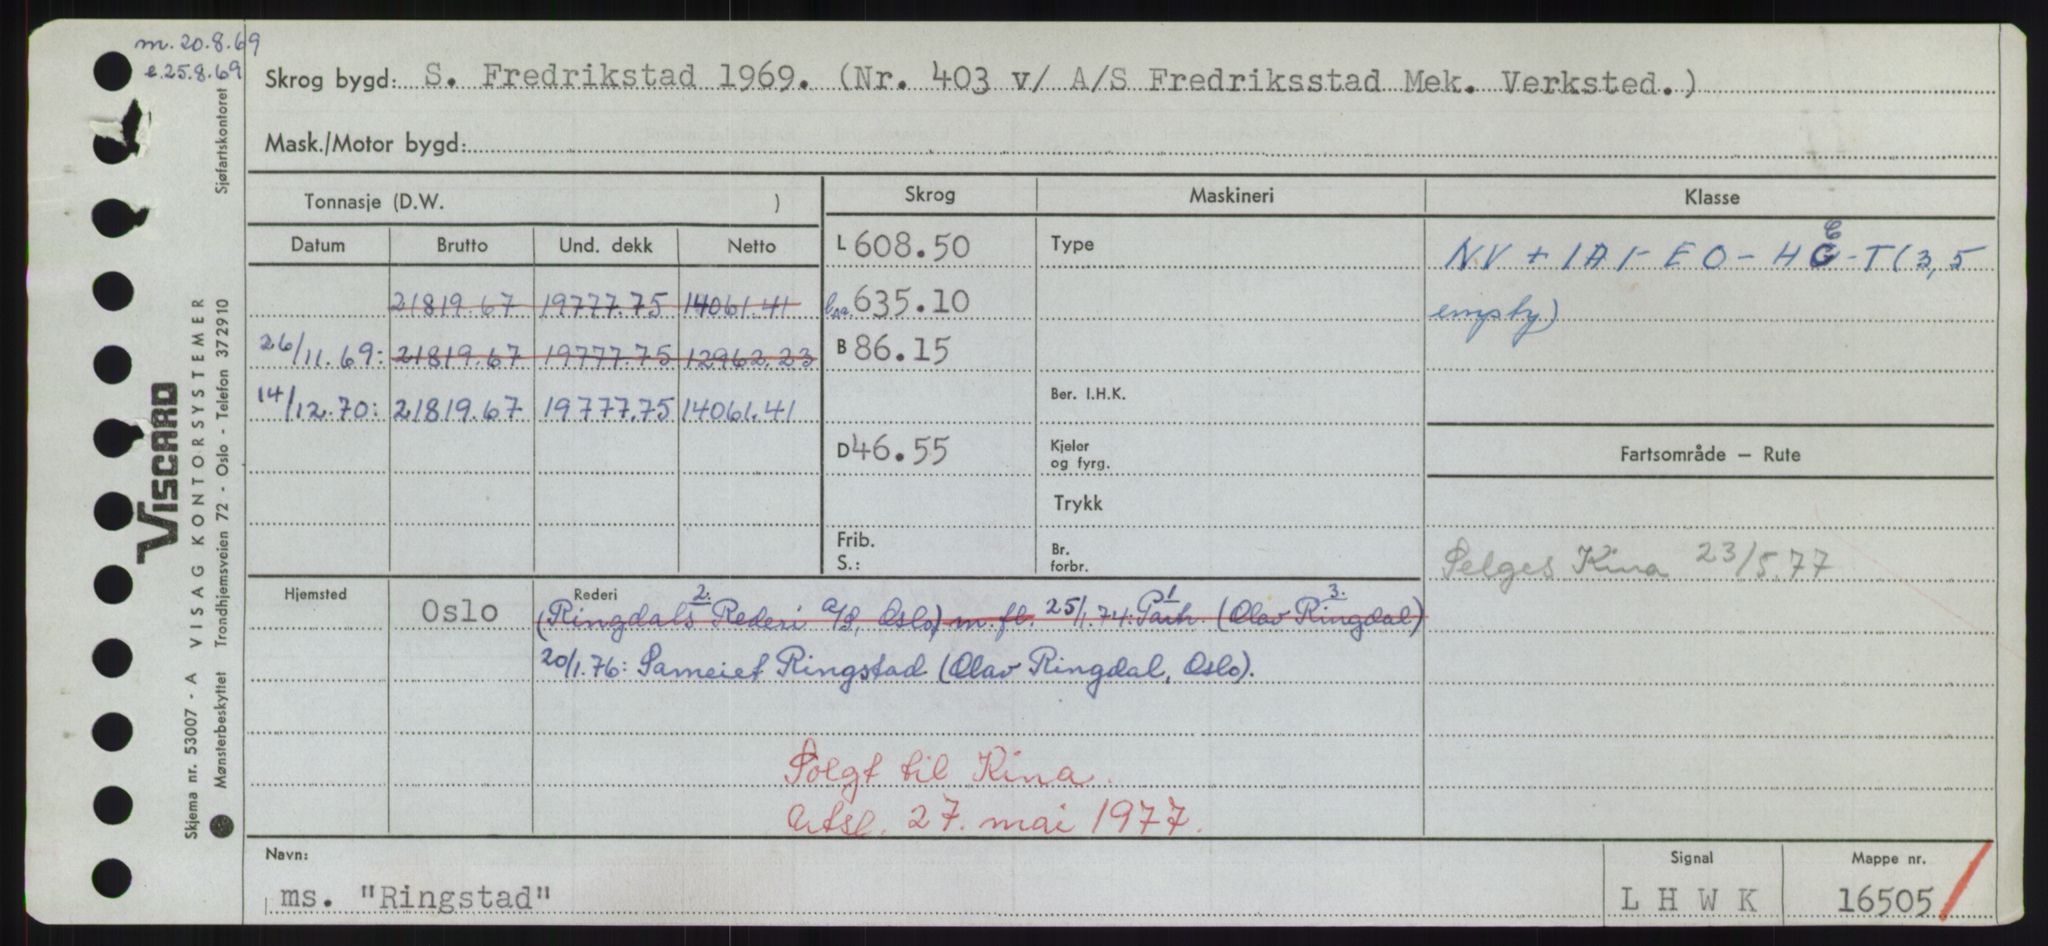 m. 20.8.69
e. 25.8.69
Skrog bygd: S. Fredrikstad 1969. (Nr. 403 v/ A/S Fredriksstad Mek. Verksted.)
Mask./Motor bygd:
Tonnasje (D.W. )
Datum Brutto Und. dekk Netto
21819.67 19777.75 14061.41
26/11.69: 21819.67 19777.75 12962.23
14/12.70: 21819.67 19777.75 14061.41
Skrog
L 608.50
b.a. 635.10
B 86.15
D 46.55
Frib.
S.:
Maskineri
Type
Ber. I.H.K.
Kjeler
og fyrg.
Trykk
Br.
forbr.
Klasse
NV + 1A1- EO - HC - T (3,5
empty)
Fartsområde – Rute
Selges Kina 23/5.77
Hjemsted Oslo
Rederi 2. 1 3.
(Ringdals Rederi a/s, Oslo) m.fl. 25/1.74: Partr. (Olav Ringdal)
20/1.76: Sameiet Ringstad (Olav Ringdal, Oslo).
Solgt til Kina.
Utsl. 27. mai 1977.
Navn: Signal Mappe nr.
ms. "Ringstad" L H W K 16505
VISCARD
Skjema nr. 53007 - A VISAG KONTORSYSTEMER
Mønsterbeskyttet Trondhjemsveien 72 - Oslo - Telefon 372910 Sjøfartskontoret